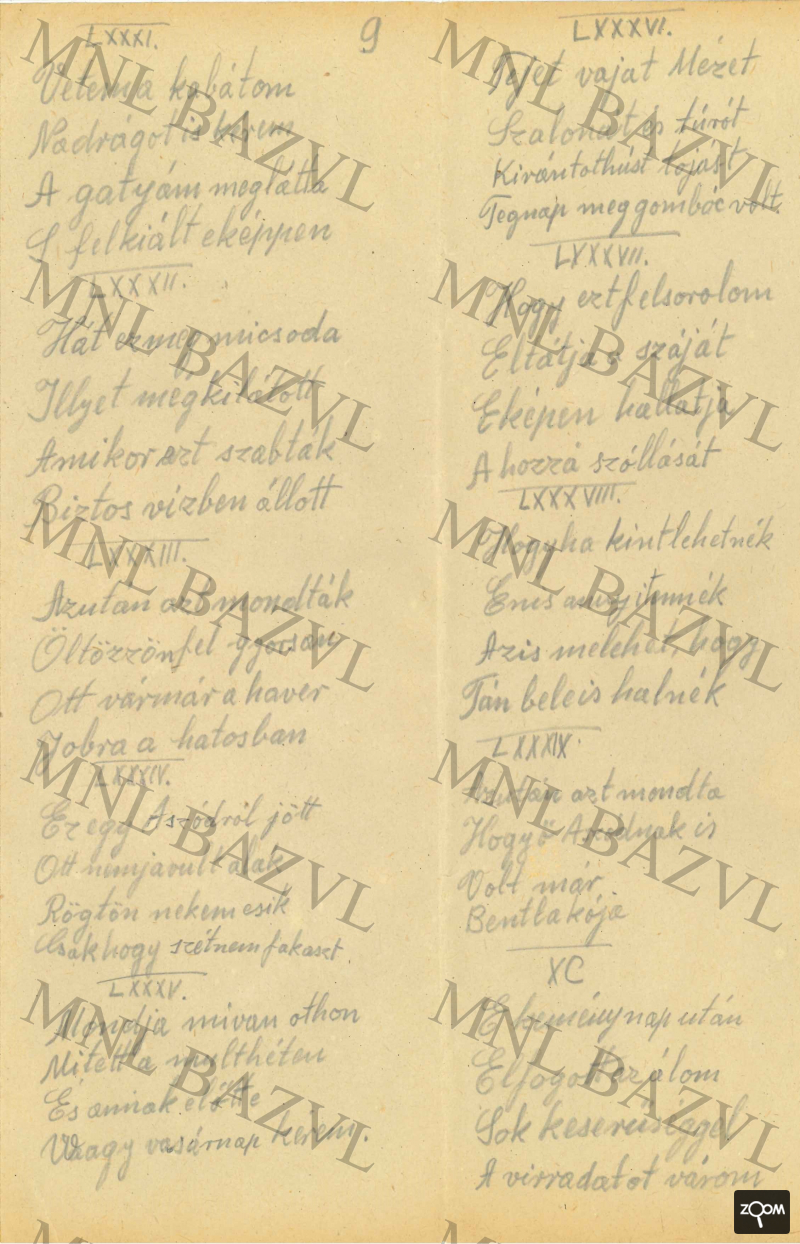 9
LXXXI.
Vetem a kabátom
Nadrágot is kérem
A gatyám meglátta
S felkiált eképpen
LXXXII.
Hát ez meg micsoda
Illyet még ki látott
Amikor ezt szabták
Biztos vízben állott
LXXXIII.
Azután azt mondták
Öltözzön fel gyorsan
Ott vár már a haver
Jobra a hatosban
LXXXIV.
Ez egy Aszódról jött
Ott nem javult alak
Rögtön nekem esik
Csakhogy szét nem fakaszt
LXXXV.
Mondja mi van othon
Mi tett a multhéten
És annak elötte
Vaagy vasárnap kérem.
LXXXVI.
Tejet vajat Mézet
Szalonát és túrót
Kirántothúst tojást
Tegnap meg gombóc volt.
LXXXVII.
Hogy ezt felsorolom
Eltátja a száját
Eképen hallatja
A hozzá szóllását
LXXXVIII.
Hogyha kint lehetnék
Enis annyit
Azis melehet, hogy
Tán beleis halnék
LXXXIX.
Azután azt mondta
Hogy ő Aszódnak is
Volt már
Bentlakója
XC
E kemény nap után
Elfogott az álom
Sok keserüséggel
A virradatot várom
MNL BAZVL
MNL BAZVL
MNL BAZVL
MNL BAZVL
MNL BAZVL
MNL BAZVL
MNL BAZVL
MNL BAZVL
MNL BAZVL
MNL BAZVL
ZOOM